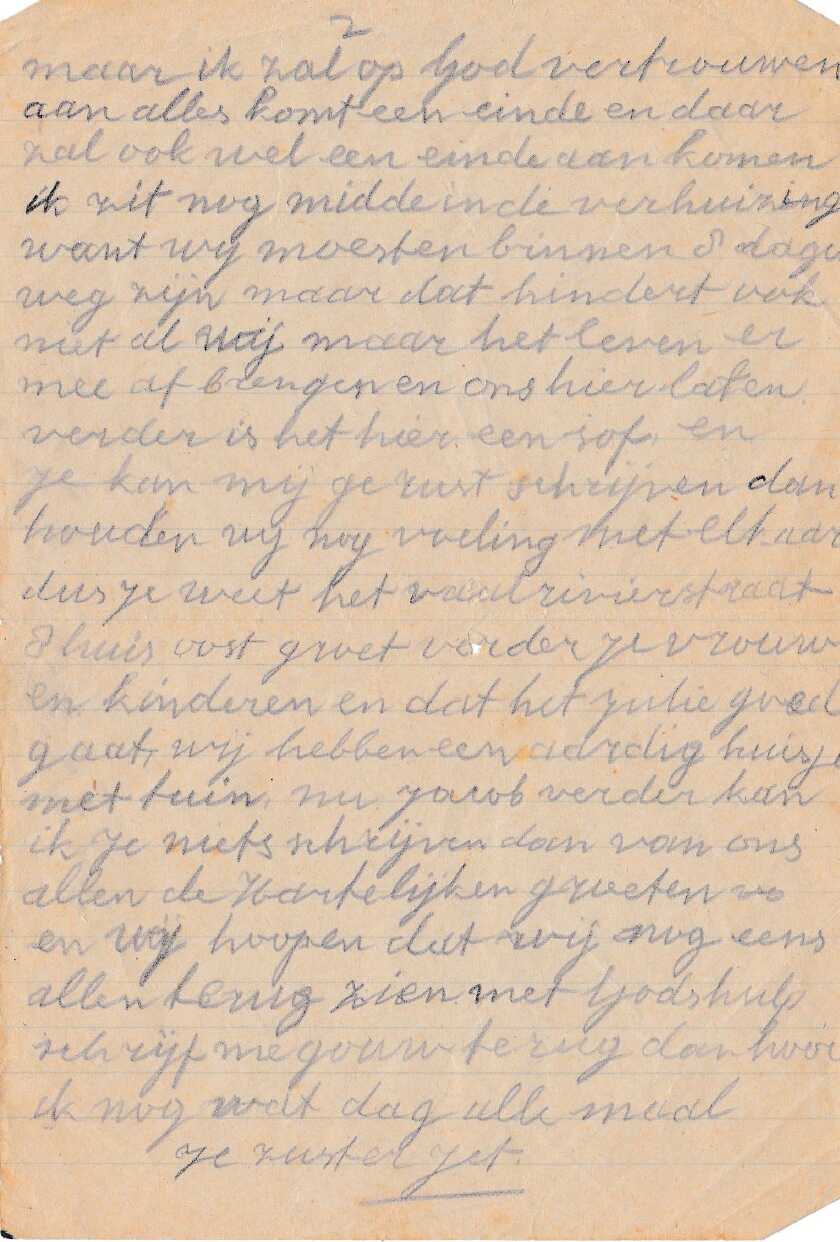 2
maar ik zal op God vertrouwen
aan alles komt een einde en daar
zal ook wel een einde aan komen
ik zit nog midde in de verhuizing
want wy moesten binnen 8 dage
weg zijn maar dat hindert ook
niet al wij maar het leven er
mee af brengen en ons hier laten
verder is het hier een sof, en
je kan mij gerust schrijven dan
houden wy nog voeling met elkaar
dus je weet het vaalrivierstraat
8 huis oost groet verder je vrouw
en kinderen en dat het julie goed
gaat, wij hebben een aardig huisje
met tuin, nu Jacob verder kan
ik je niets schrijven dan van ons
allen de Hartelijken groeten
en wij hoopen dat wij nog eens
allen terug zien met Gods hulp
schrijf me gouw terug dan hoor
ik nog wat dag alle maal
je zuster Jet.